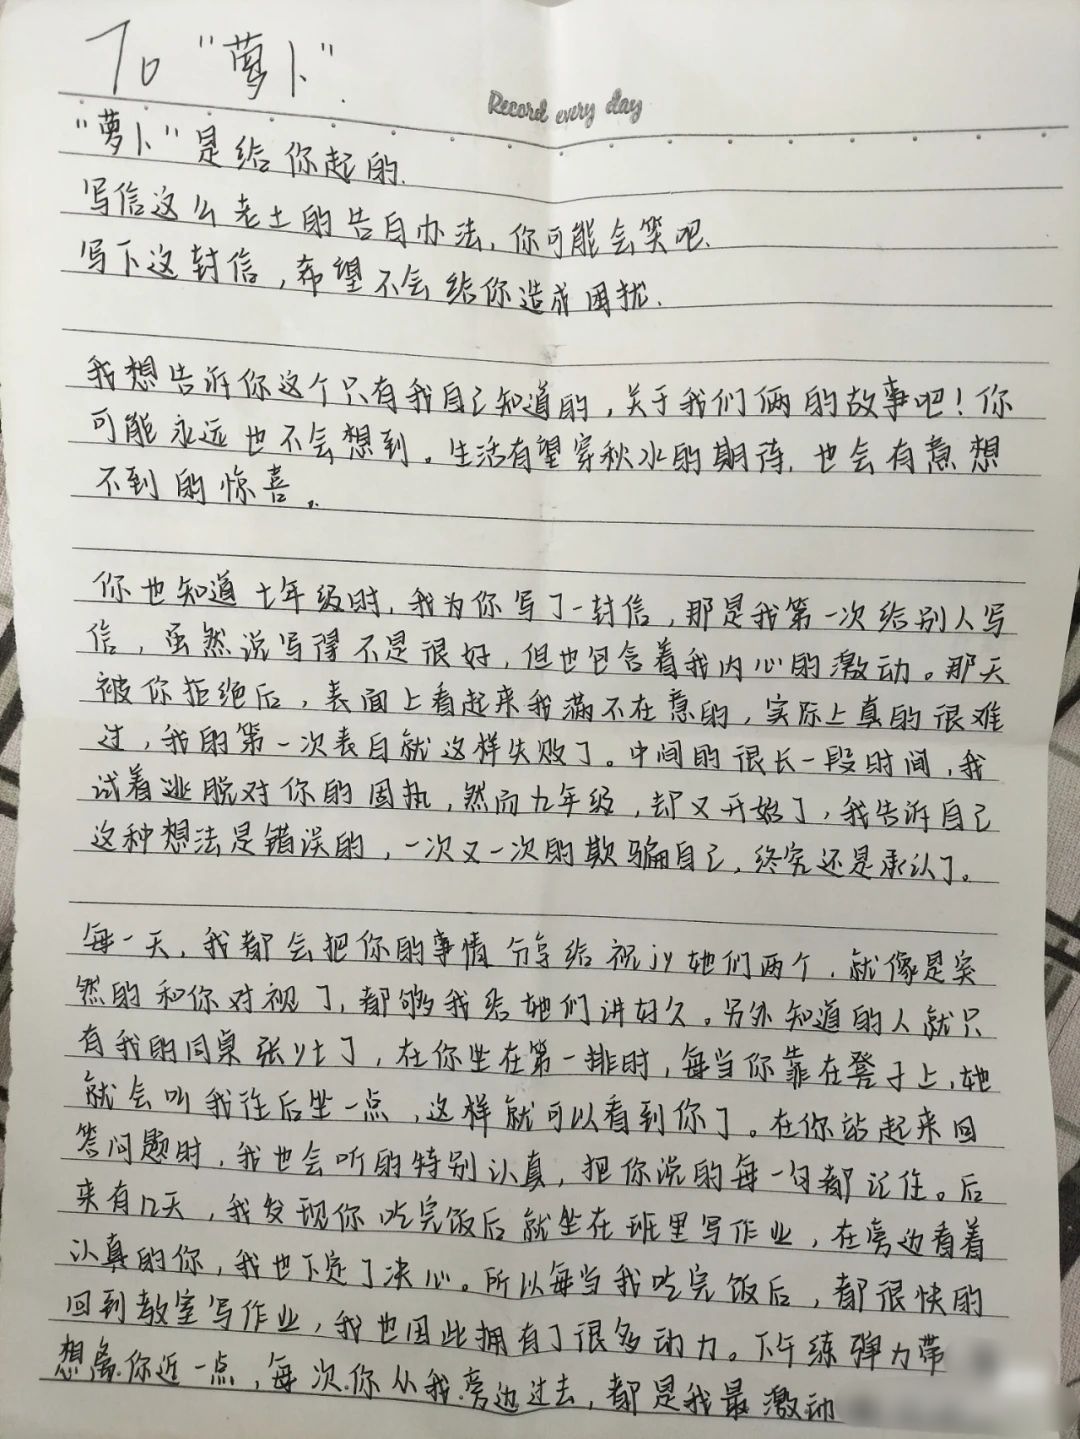 To "萝卜".
Record every day
"萝卜"是给你起的.
写信这么老土的告白办法,你可能会笑吧.
写下这封信,希望不会给你造成困扰.
我想告诉你这个只有我自己知道的,关于我们俩的故事吧!你
可能永远也不会想到。生活有望穿秋水的期待,也会有意想
不到的惊喜。
你也知道七年级时,我为你写了一封信,那是我第一次给别人写
信,虽然说写得不是很好,但也包含着我内心的激动。那天
被你拒绝后,表面上看起来我满不在意的,实际上真的很难
过,我的第一次表白就这样失败了。中间的很长一段时间,我
试着逃脱对你的固执,然而九年级,却又开始了,我告诉自己
这种想法是错误的,一次又一次的欺骗自己,终究还是承认了。
每一天,我都会把你的事情分享给祝jy她们两个,就像是突
然的和你对视了,都够我给她们讲好久。另外知道的人就只
有我的同桌张yt了,在你坐在第一排时,每当你靠在凳子上,她
就会叫我往后坐一点,这样就可以看到你了。在你站起来回
答问题时,我也会听的特别认真,把你说的每一句都记住。后
来有几天,我发现你吃完饭后就坐在班里写作业,在旁边看着
认真的你,我也下定了决心。所以每当我吃完饭后,都很快的
回到教室写作业,我也因此拥有了很多动力。下午练弹力带
想离你近一点,每次你从我旁边过去,都是我最激动